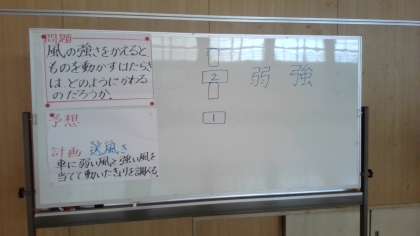 問題
風の強さをかえると
ものを動かすはたらき
は どのようにかわる
のだろうか。
2 弱 強
1
予想
計画 送風き
車に弱い風と強い風を
当てて動いたきょりを調べる。